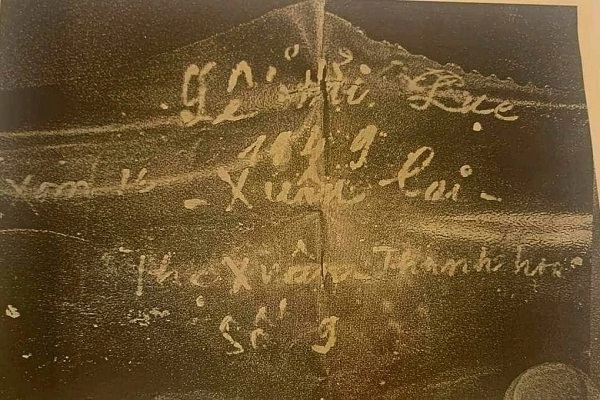 Lê Thị Lục
1949
Xóm 16 - Xuân Lai -
Thọ Xuân Thanh hoá
Số 9